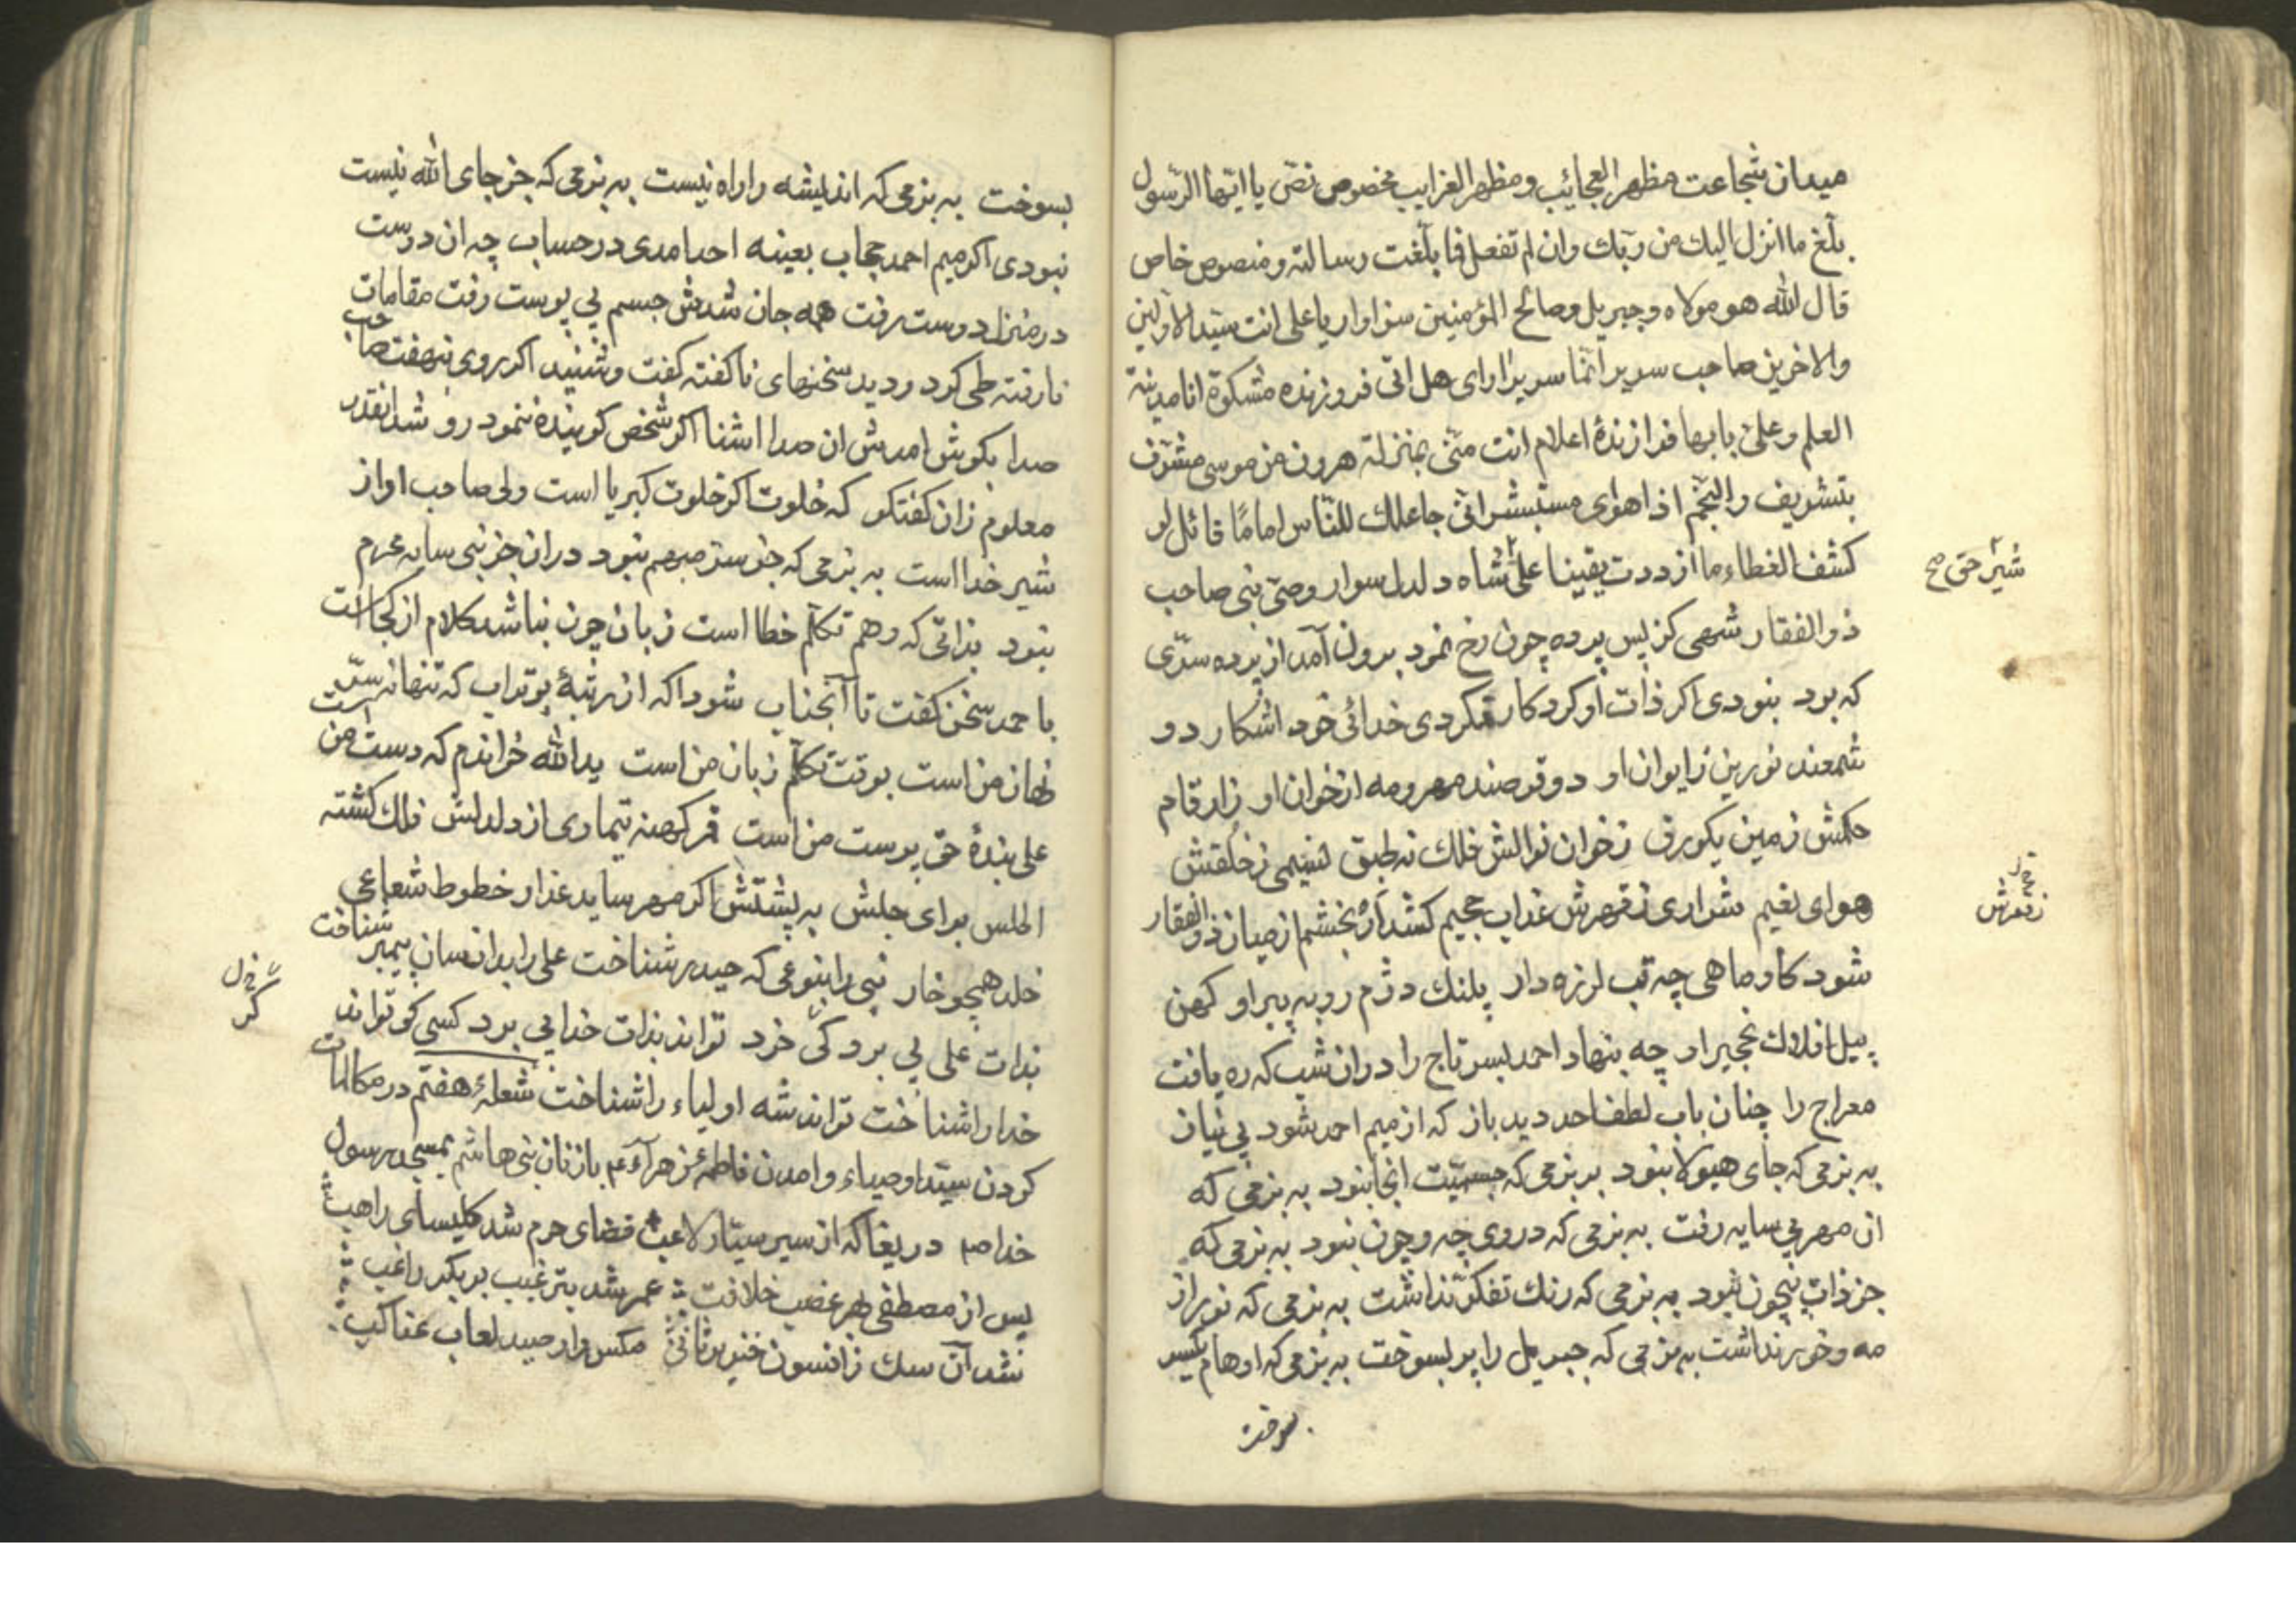 میدان شجاعت مظهر العجائیب و مظهر الغرایب مخصوص نصّ یا ایّها الرّسول
بلّغ ما انزل الیك من ربّك وان لم تفعل فما بلّغت رسالته و منصوص خاص
قال الله هو مولاه وجبریل وصالح المؤمنین سزاوار یا علی انت سیّد الاوّلین
والاخرین صاحب سریر انّما سریر ارای هل اتی فروزنده مشکوة انا مدینة
العلم وعلیّ بابها فرازندۀ اعلام انت منّی بمنزلة هرون من موسی مشرّف
بتشریف والنّجم اذا هوی مستبشر انّی جاعلك للنّاس امامًا قائل لو
کشف الغطاء ما ازددت یقینا علی شاه دلدل سوار وصیّ نبی صاحب
شیر حق صح
ذوالفقار شهی کز پس پرده چون رخ نمود برون آمد از پرده سرّی
که بود نبودی اکر ذات او کردکار نمکردی خدائی خود اشکار دو
شمعند نورین ز ایوان او دو قرصند مهر و مه از خوان او ز ارقام
حکمش زمین یکورق ز خوان نوالش فلك نه طبق نسیمی ز خلقتش
هوای نعیم شراری ز قهرش عذاب جحیم کشد ار بخشم از میان ذوالفقار
ز قهرش
شود کاو ماهی چه تب لرزه دار پلنك دژم روبه پیر او کهن
پیل افلاك نخجیر او چه بنهاد احمد بسر تاج را دران شب که ره یافت
معراج را چنان باب لطف احد دید باز که از میم احمد شود بی نیاز
به بزمی که جای هیولا نبود به بزمی که جسمیّت انجا نبود به بزمی که
ان مهر بی سایه رفت به بزمی که در وی چه و چون نبود به بزمی که
جز ذات بیچون نبود به بزمی که رنك تفکّر نداشت به بزمی که نور از
مه و خور نداشت به بزمی که جبریل را پر بسوخت به بزمی که اوهام یکسر
بسوخت
بسوخت به بزمی که اندیشه را راه نیست به بزمی که جز جای الله نیست
نبودی اکر میم احمد حجاب بعینه احد امدی در حساب چه ان دوست
در منزل دوست رفت همه جان شدش جسم بی پوست رفت مقامات
نارفته طی کرد و دید سخنهای ناکفته کفت و شنید اکر روی بنهفت صاحب
صدا بکوش امدش ان صدا اشنا اکر شخص کوینده ننمود رو شد انقدر
معلوم زان کفتکو که خلوت اکر خلوت کبریا است ولی صاحب اواز
شیر خدا است به بزمی که جز سرّ مبهم نبود دران جز نبی سایه محرم
نبود بذاتی که وهم تکلّم خطا است زبان چون نباشد کلام از کجا است
با احمد سخن کفت تا آنجناب شود اکه از رتبۀ بوتراب که تنها نه سرّ
نهان من است بوقت تکلّم زبان من است ید الله خواندم که دست من است
علی بندۀ حق پرست من است قمر کهنه تیماری از دلدلش فلك کشته
اطلس برای جلش به پشتش اکر مهر ساید عذار خطوط شعاعی
خلد همچو خار نبی را بنوعی که حیدر شناخت علی را بدانسان پیمبر شناخت
بذات علی پی برد کی خرد تواند بذات خدا پی برد کسی کو تواند
کر
خدا را شناخت تواند شه اولیاء را شناخت شعلۀ هفتم در مکالمات
کردن سیّد اوصیاء و امدن فاطمۀ زهرآء ع م با زنان بنی هاشم بمسجد رسول
خدا ص م دریغا که از سیر سیّار لاعب فضای حرم شد کلیسای راهب
پس از مصطفی بهر غصب خلافت عمر شد بترغیب بوبکر راغب
نشد آن سك ز افسون خنزیر ثانی مکس وار صید لعاب عناکب